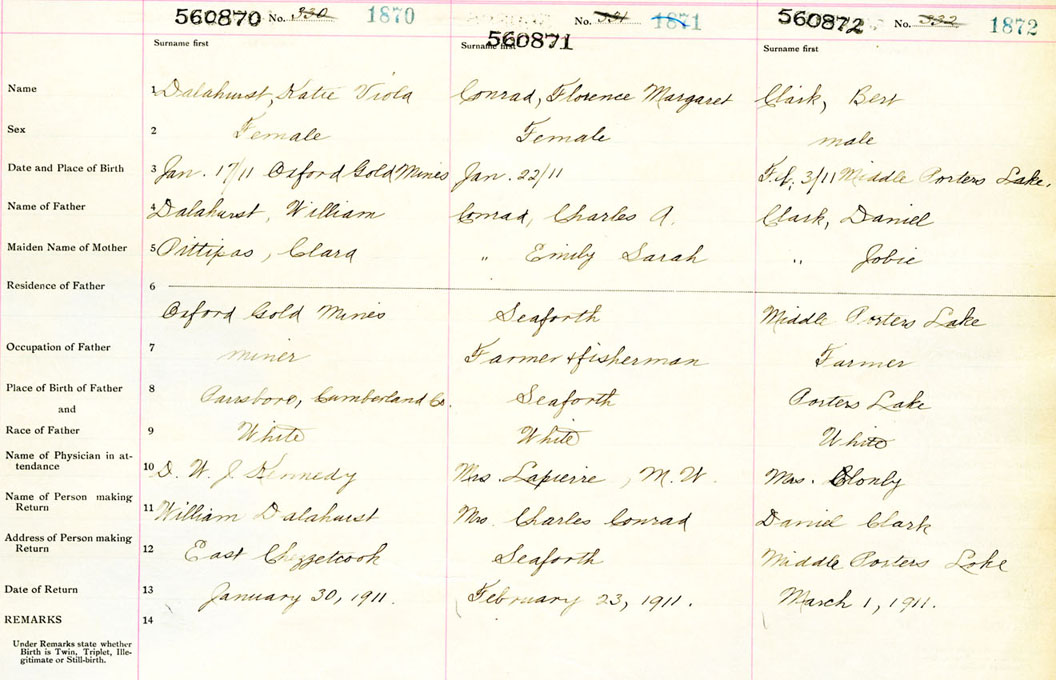 560870 No. 330 1870 No. 331 1871 560872 No. 332 1872
Surname first Surname first 560871 Surname first
Name 1 Dalahurst, Katie Viola Conrad, Florence Margaret Clark, Bert
Sex 2 Female Female male
Date and Place of Birth 3 Jan. 17/11 Oxford Gold Mines Jan. 22/11 Feb. 3/11 Middle Porters Lake.
Name of Father 4 Dalahurst, William Conrad, Charles A. Clark, Daniel
Maiden Name of Mother 5 Pittipas, Clara " Emily Sarah " Jobie
Residence of Father 6
Oxford Gold Mines Seaforth Middle Porters Lake
Occupation of Father 7 miner Farmer & fisherman Farmer
Place of Birth of Father 8 Parrsboro, Cumberland Co. Seaforth Porters Lake
and
Race of Father 9 White White White
Name of Physician in at-
tendance 10 D. W. J. Kennedy Mrs. Lapierre, M. W. Mrs.
Name of Person making
Return 11 William Dalahurst Mrs. Charles Conrad Daniel Clark
Address of Person making
Return 12 East Chezzetcook Seaforth Middle Porters Lake
Date of Return 13 January 30, 1911. February 23, 1911. March 1, 1911.
REMARKS 14
Under Remarks state whether
Birth is Twin, Triplet, Ille-
gitimate or Still-birth.